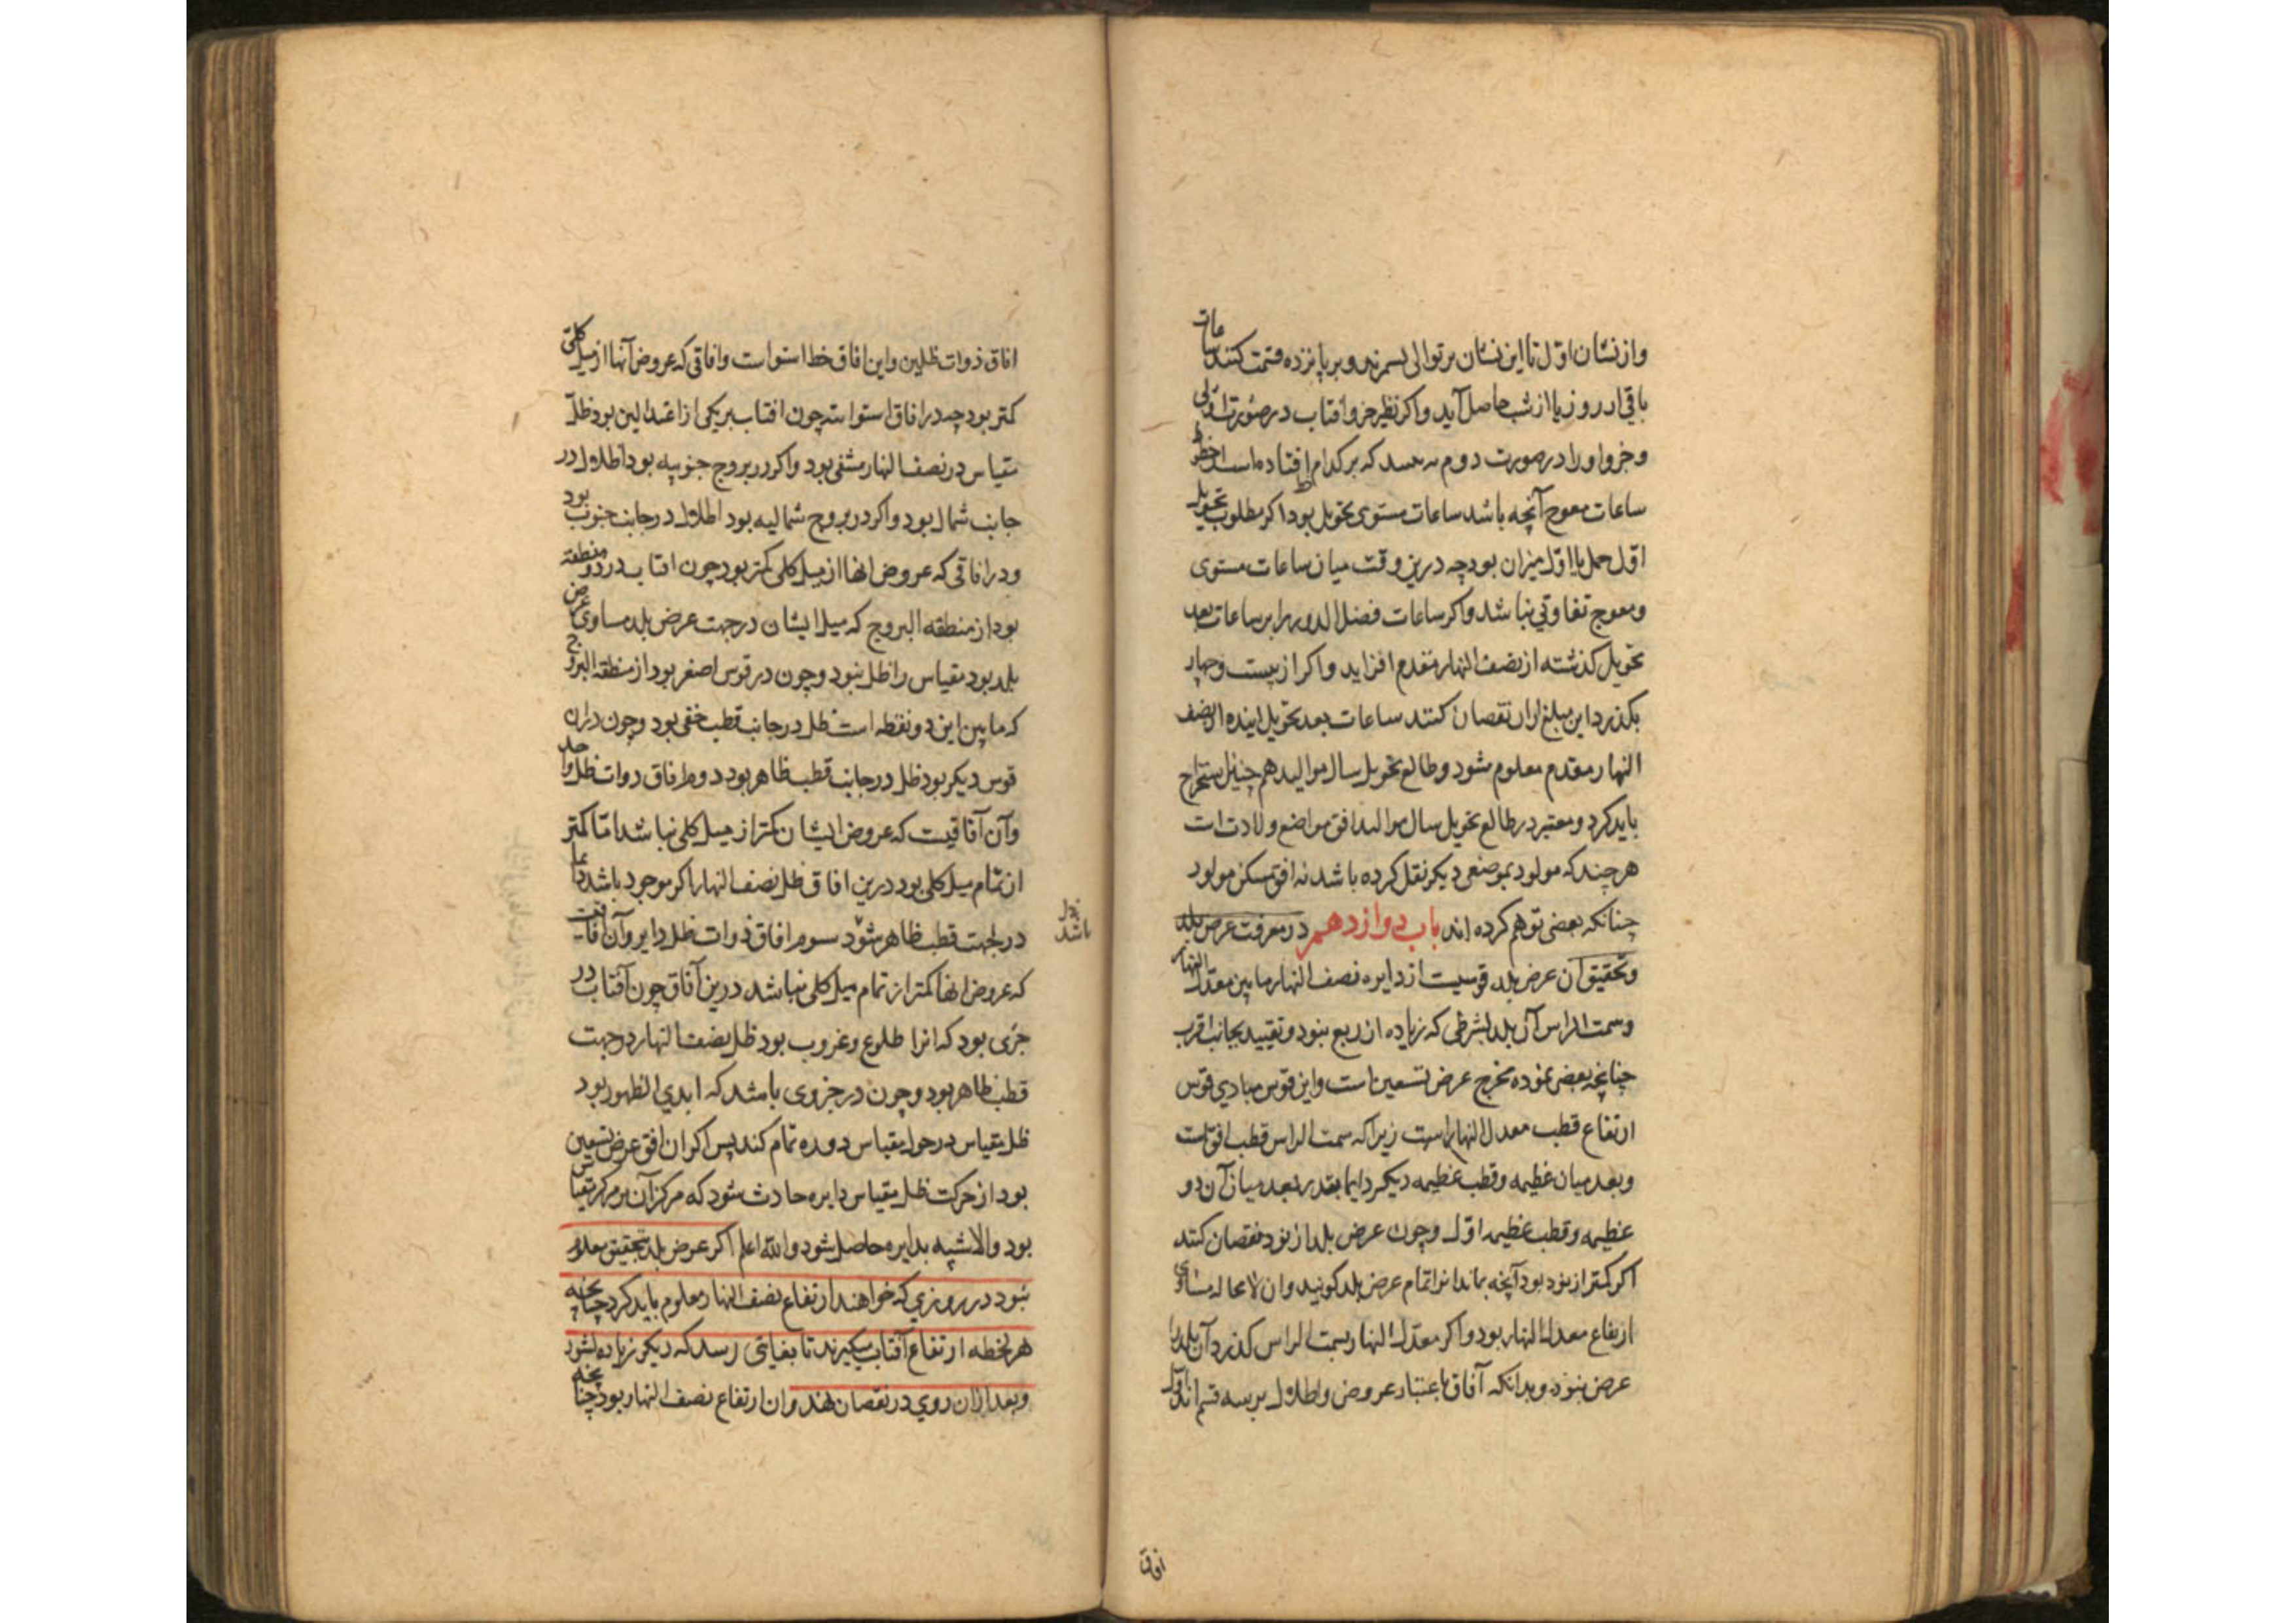 واز نشان اول تا این نشان بر توالی بشمرند و بر پانزده قسمت کنند ساعات
باقی از روز یا از شب حاصل آید و اگر نظیر جزو آفتاب در صورت اولی
و جزو او را در صورت دوم که بر کدام افتاده است از خطوط
ساعات معوج آنچه باشد ساعات مستوی تحویل بود اگر مطلوب تحویل
اول حمل یا اول میزان بود چه درین وقت میان ساعات مستوی
و معوج تفاوتی نباشد و اگر ساعات فضل الدور برابر ساعات بعد
تحویل گذشته از نصف النهار متقدم افزاید و اگر از بیست و چهار
بگذرد این مبلغ ازان نقصان کنند ساعات بعد تحویل آینده از نصف
النهار مقدم معلوم شود و طالع تحویل سال موالید هم چنین استخراج
باید کرد و معتبر در طالع تحویل سال موالید افق مواضع ولادت است
هر چند که مولود بموضعی دیکر نقل کرده باشد نه افق مسکن مولود
چنانکه بعضی توهم کرده اند باب دوازدهم در معرفت عرض بلد
و تحقیق آن عرض بلد قوسیت از دایره نصف النهار ما بین معدل النهار
و سمت الراس آن بلد بشرطی که زیاده از ربع نبود و تقیید بجانب اقرب
چنانچه بعضی نموده مخرج عرض تسعین است و این قوس مساوی قوس
ارتفاع قطب معدل النهار است زیرا که سمت الراس قطب افق است
و بعد میان عظیمه و قطب عظیمه دیکر دایما بقدر بعد میان آن دو
عظیمه و قطب عظیمه اول و چون عرض بلد از نود نقصان کنند
اکر کمتر از نود بود آنچه بماند انرا تمام عرض بلد کویند و ان لامحاله مساوی
ارتفاع معدل النهار بود و اکر معدل النهار بسمت الراس کذرد آن بلد را
عرض نبود و بدانکه آفاق باعتبار عروض و اظلال بر سه قسم اند اول
افاق
افاق ذوات ظلین و این افاق خط استواست و افاقی که عروض آنها از میل کلی
کمتر بود چه در افاق استوا ست چون افتاب بر یکی از اعتدالین بود ظل
مقیاس در نصف النهار منفی بود و اکر در بروج جنوبیه بود اظلال در
جانب شمال بود و اکر در بروج شمالیه بود اظلال در جانب جنوب بود
و در افاقی که عروض انها از میل کلی کمتر بود چون افتاب در دو نقطه
بود از منطقه البروج که میل ایشان در جهت عرض بلد مساوی عرض
بلد بود مقیاس را ظل نبود و چون در قوس اصغر بود از منطقه البروج
که ما بین این دو نقطه است ظل در جانب قطب خفی بود و چون دران
قوس دیکر بود ظل در جانب قطب ظاهر بود دوم افاق ذوات ظل واحد
و آن آفاقیست که عروض ایشان کمتر از میل کلی نباشد اما کمتر
از تمام میل کلی بود درین افاق ظل نصف النهار اکر موجود باشد دایما
در جهت قطب ظاهر شود سوم افاق ذوات ظل دایر و آن آفاقیست
نبود باشد
که عروض انها کمتر از تمام میل کلی نباشد درین آفاق چون آفتاب در
جزی بود که انرا طلوع و غروب بود ظل نصف النهار در جهت
قطب ظاهر بود و چون در جزوی باشد که ابدی الظهور بود
ظل مقیاس در حوالی مقیاس دوره تمام کند پس اکر ان افق عرض تسعین
بود از حرکت ظل مقیاس دایره حادث شود که مرکز آن مرکز مقیاس
بود و الا شبیه بدایره حاصل شود والله اعلم اکر عرض بلد بتحقیق معلوم
نبود در روزی که خواهند ارتفاع نصف النهار معلوم باید کرد چنانچه
هر لحظه ارتفاع آفتاب میکیرند تا بغایتی رسد که دیکر زیاده نشود
و بعد ازان روی در نقصان نهد و ان ارتفاع نصف النهار بود چنانچه